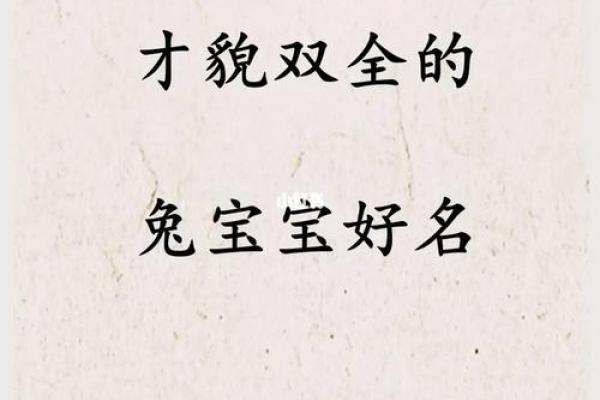 才貌双全的
兔宝宝好名